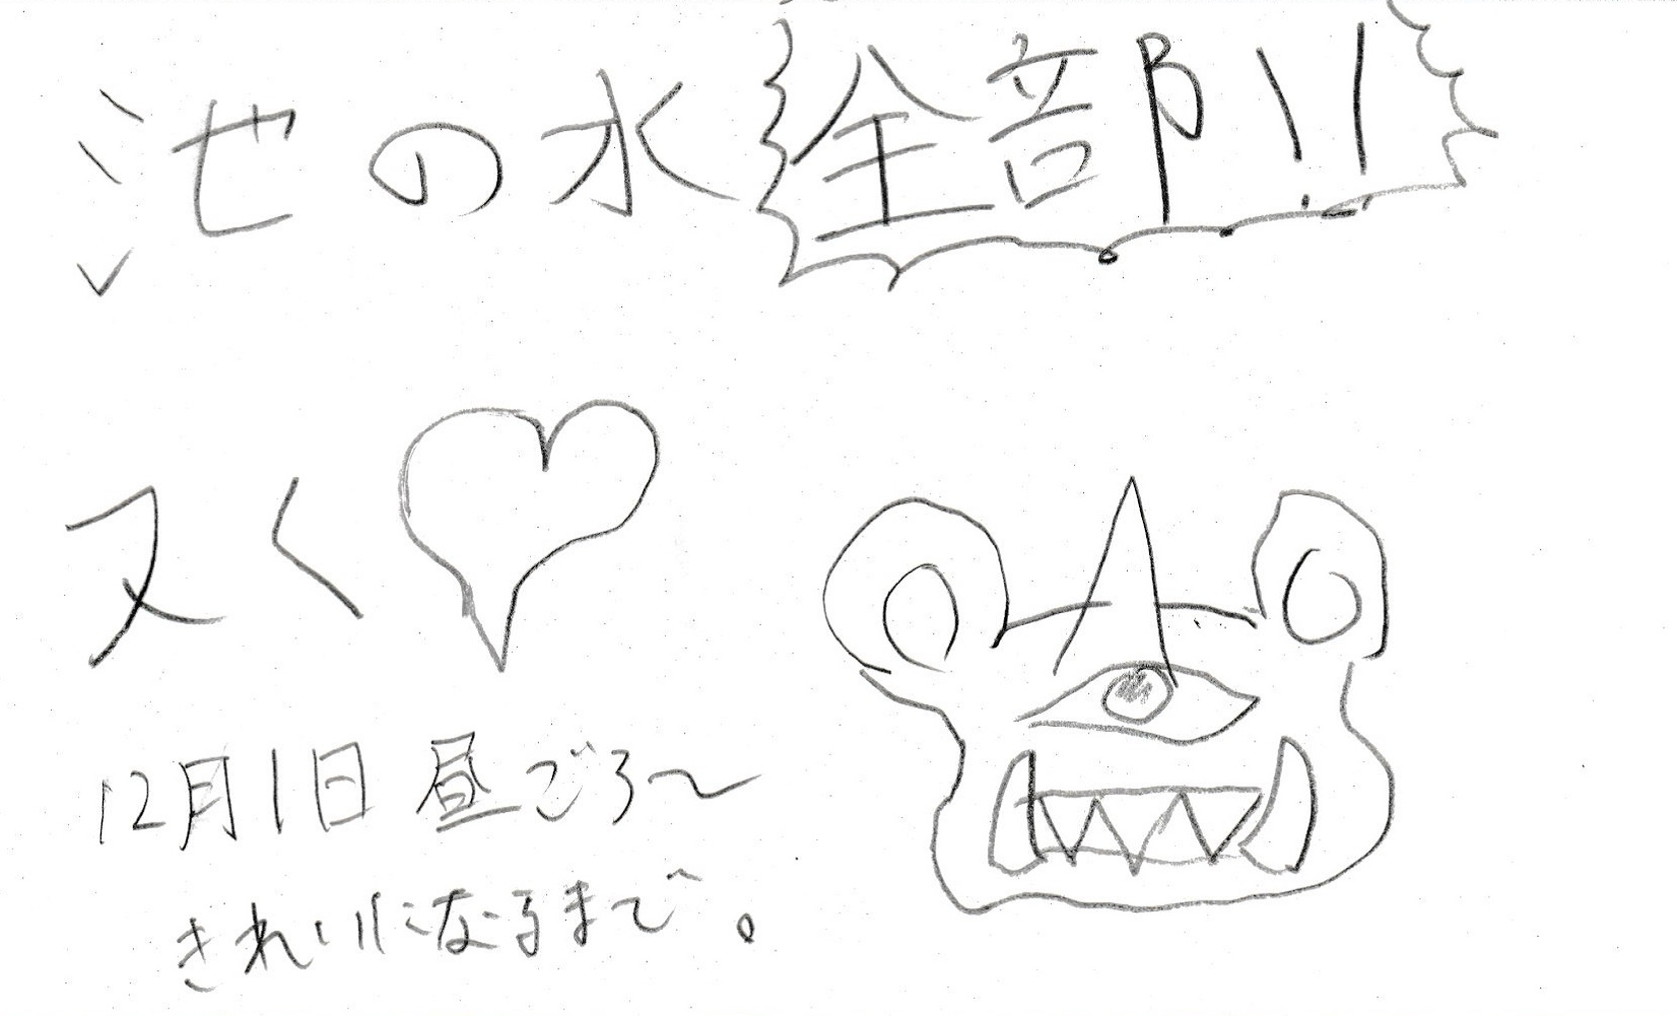 池の水全部!!
又く♡
12月1日 昼ごろ〜
きれいになるまで。